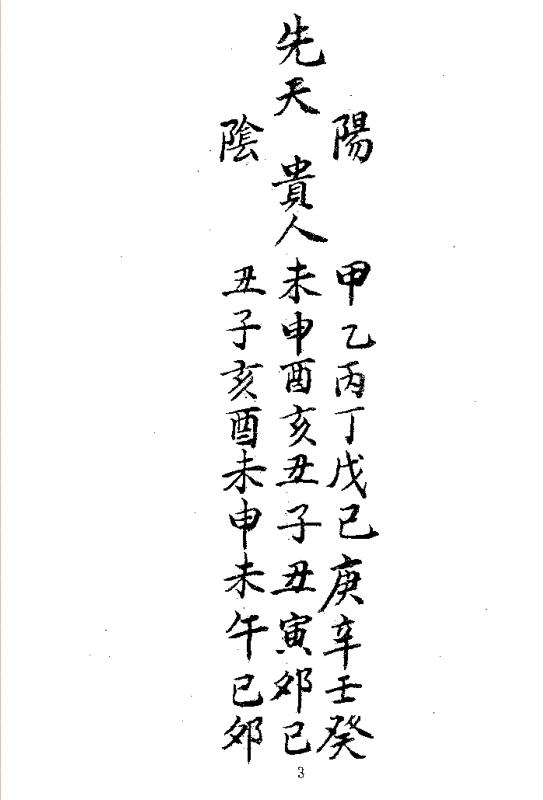 陽
甲乙丙丁戊己庚辛壬癸
先天貴人
未申酉亥丑子丑寅卯巳
陰
丑子亥酉未申未午巳卯
3